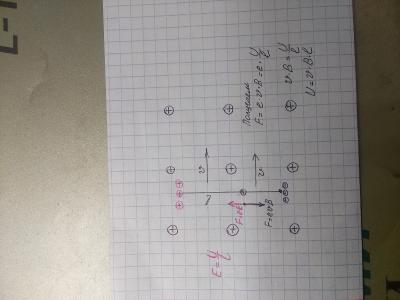 E = U/l
F=eE
F=evB
l
v
v
Получаем
F = e·v·B = e·U/l
v·B = U/l
U = v·B·l